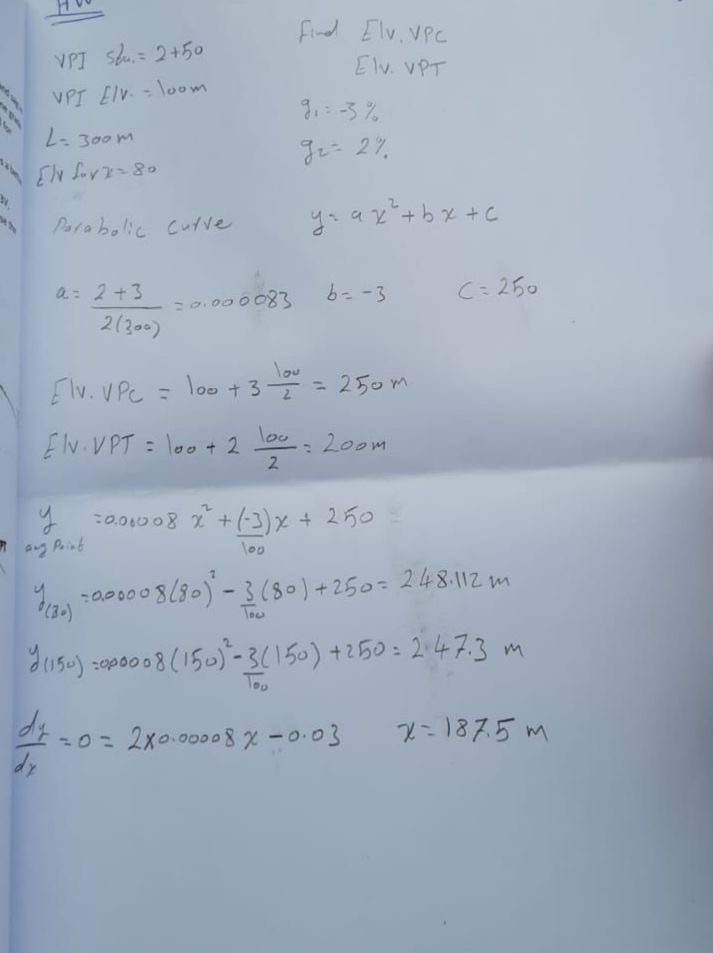 HW
VPI Sta. = 2+50
VPI Elv. = 100m
L = 300m
Elv for x = 80
Find Elv. VPC
Elv. VPT
g₁ = -3%
g₂ = 2%
Parabolic curve y = ax² + bx + c
a = 2+3 / 2(300) = 0.000083 b = -3 C = 250
Elv. VPC = 100 + 3 100/2 = 250m
Elv. VPT = 100 + 2 100/2 = 200m
y any Point = 0.00008 x² + (-3)/100 x + 250
y(80) = 0.00008(80)² - 3/100 (80) + 250 = 248.112 m
y(150) = 0.00008(150)² - 3/100 (150) + 250 = 247.3 m
dy/dx = 0 = 2x0.00008x - 0.03 x = 187.5 m